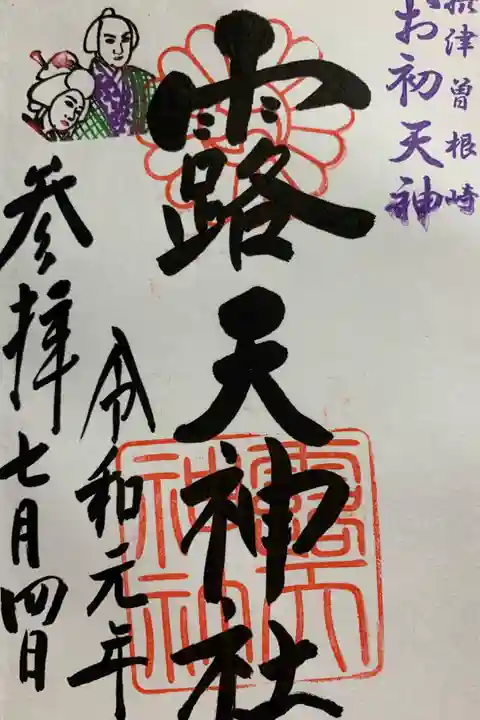 摂津曽根崎
お初天神
露天神社
令和元年
参拝七月四日
露天
神社